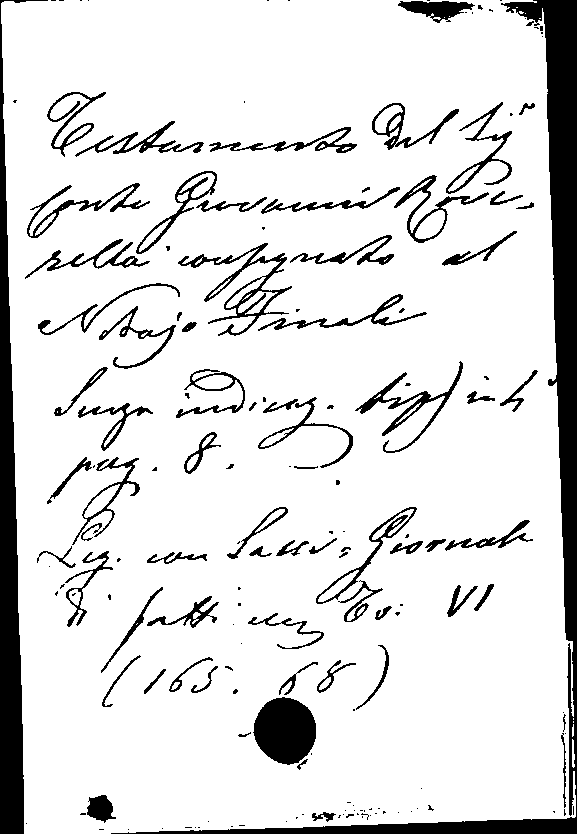 Testamento del Sig.r
Conte Giovanni Rove-
rella consegnato al
Notajo Finali
Senza indicaz. tip) in 4°
pag. 8.
Leg. con Sassi = Giornale
di fatti ecc To: VI
(165. 68)